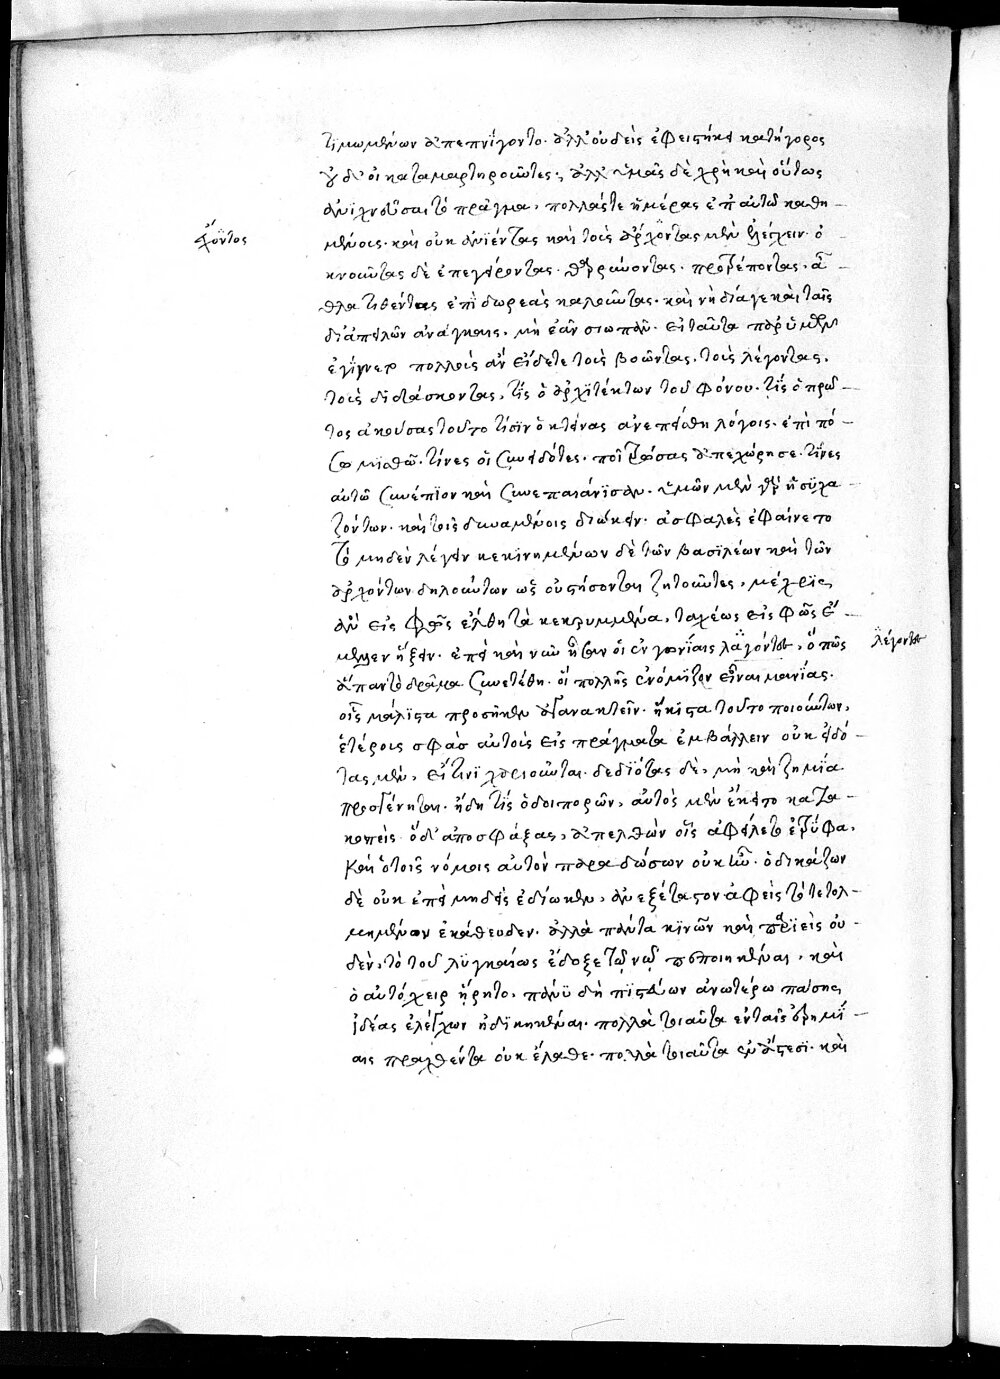 τιμωμένων ἀπεπνίγοντο. ἀλλ' οὐδεὶς ἐφειστήκει κατήγορος
οὐδ' οἱ καταμαρτυροῦντες. ἀλλ' ὑμᾶς δὲ χρὴ καὶ οὕτως
ἀνιχνεῦσαι τὸ πρᾶγμα, πολλάς τε ἡμέρας ἐπ' αὐτῷ καθη-
ἔχοντος
μένοις. καὶ οὐκ ἀνιέντας καὶ τοὺς ἄρχοντας μὲν ἐλέγχειν. ὀ-
κνοῦντας δὲ ἐπεγείροντας. θαρρύνοντας. προτρέποντας. ἆ-
θλα τιθέντας ἐπὶ δωρεὰς καλοῦντας. καὶ νὴ δία γε καὶ ταῖς
δι' ἀπειλῶν ἀνάγκαις, μὴ ἐᾶν σιωπᾶν. εἰ ταῦτα παρ' ὑμῶν
ἐγίγνετο πολλοὺς ἂν εἴδετε τοὺς βοῶντας, τοὺς λέγοντας,
τοὺς διδάσκοντας, τίς ὁ ἀρχιτέκτων τοῦ φόνου. τίς ὁ πρῶ-
τος ἀκούσας τοῦτο τίσιν ὁ κτείνας ἀνεπείσθη λόγοις. ἐπὶ πό-
σῳ μισθῷ. τίνες οἱ συνειδότες. ποῖ τρώσας ἀπεχώρησε. τίνες
αὐτῷ συνέπιον καὶ συνεπαιάνισαν. ὑμῶν μὲν γὰρ ἡσυχα-
ζόντων. καὶ τοῖς δυναμένοις διώκειν. ἀσφαλὲς ἐφαίνετο
τὸ μηδὲν λέγειν κεκινημένων δὲ τῶν βασιλέων καὶ τῶν
ἀρχόντων δηλούντων ὡς οὐ στήσονται ζητοῦντες, μέχρις
ἂν εἰς φῶς ἔλθη τὰ κεκρυμμένα, ταχέως εἰς φῶς ἔ-
μελλεν ἥξειν. ἐπεὶ καὶ νῦν ἦσαν οἱ ἐν γωνίαις λαγόντες, ὅπως
λέγοντες
ἅπαν τὸ δρᾶμα συνετέθη. οἳ πολλῆς ἐνόμιζον εἶναι μανίας.
οἷς μάλιστα προσῆκεν ἀγανακτεῖν. ἥκιστα τοῦτο ποιούντων,
ἑτέροις σφᾶς αὐτοὺς εἰς πράγματα ἐμβάλλειν οὐκ εἰδό-
τας μὲν, εἴ τινι χαριοῦνται. δεδιότας δὲ, μὴ καὶ ζημία
προσγένηται. ἤδη τίς ὁδοιπορῶν, αὐτὸς μὲν ἔκειτο κατα-
κοπεὶς. ὁ δ' ἀποσφάξας, ἀπελθὼν οἷς ἀφείλετο ἐτρύφα.
καὶ ὁ τοῖς νόμοις αὐτὸν παραδώσων οὐκ ἦν. ὁ δικάζων
δὲ οὐκ ἐπεὶ μηδεὶς ἐδίωκεν, ἀνεξέταστον ἀφεὶς τὸ τετολ-
μημένον ἐκάθευδεν. ἀλλὰ πάντα κινῶν καὶ παριεὶς οὐ-
δὲν, τὸ τοῦ λυγκέως ἔδοξε τῷ νῷ πεποιηκέναι, καὶ
ὁ αὐτόχειρ ᾕρητο. πάνυ δὴ πιστεύων ἀνωτέρω πάσης
ἰδέας ἐλέγχων ἠδικηκέναι. πολλὰ τοιαῦτα ἐν ταῖς ἐρημί-
αις πραχθέντα οὐκ ἔλαθε. πολλὰ τοιαῦτα ἐν ἄστεσι. καὶ